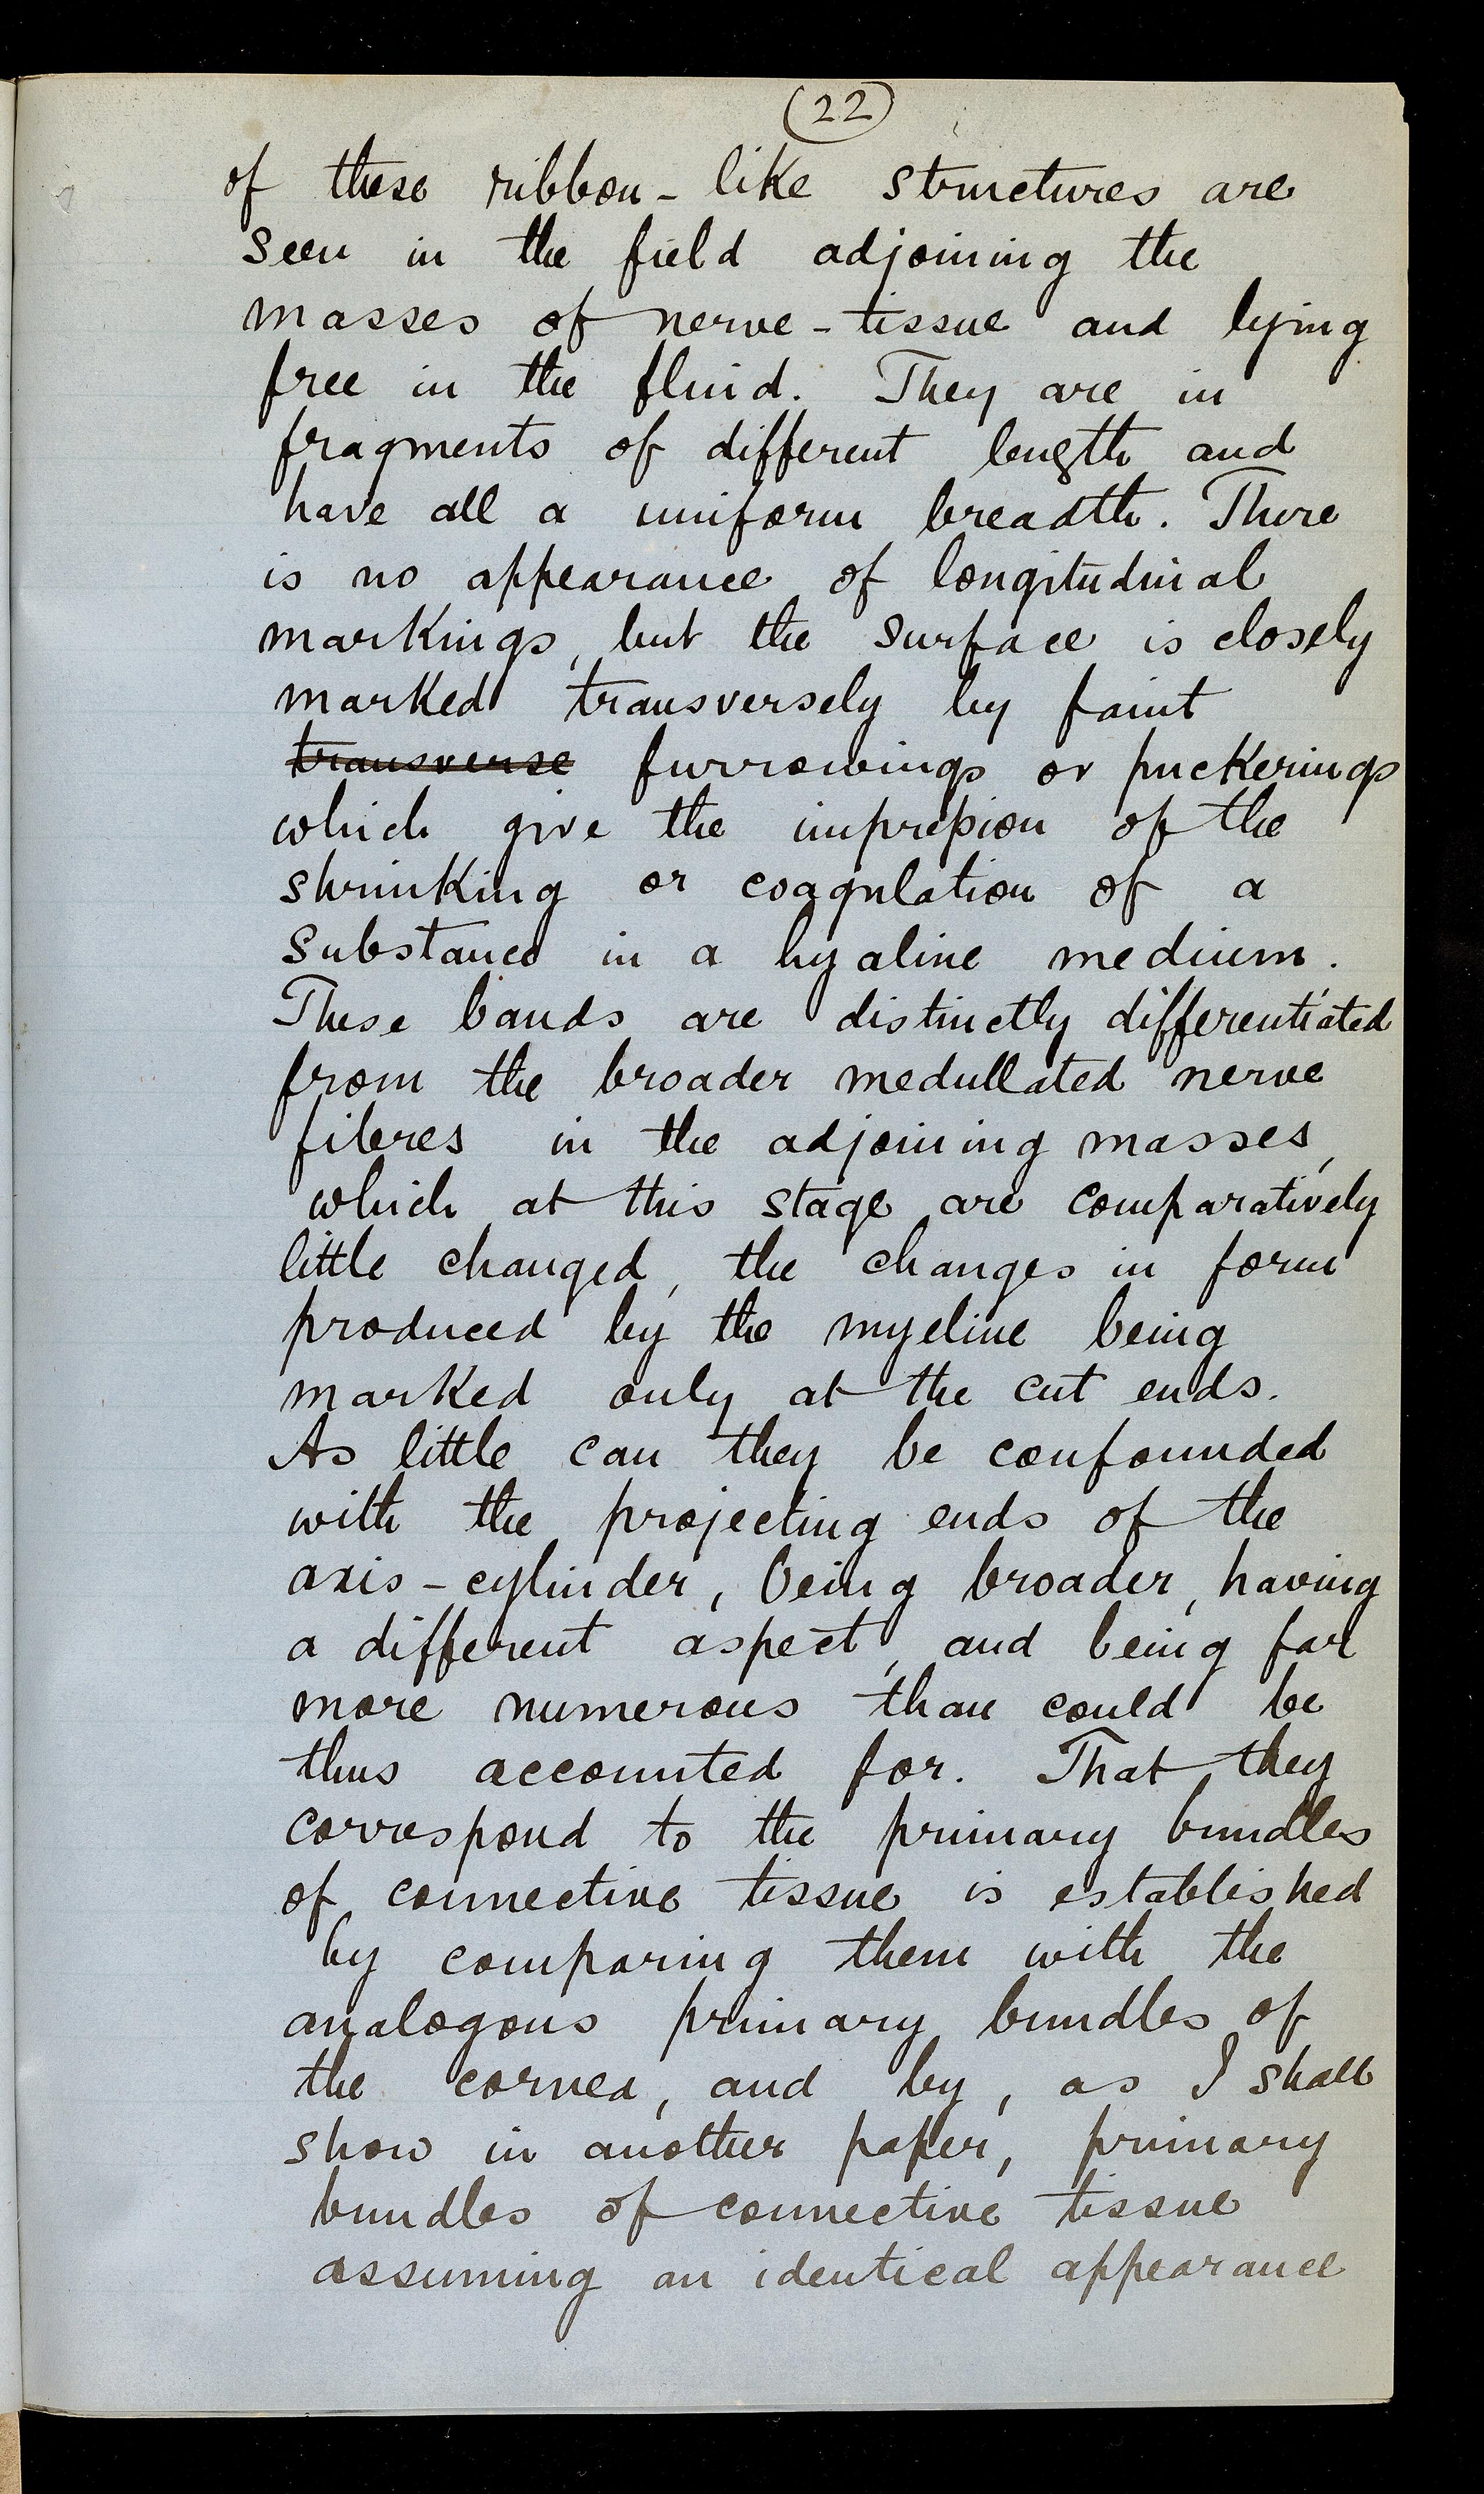 (22)
of these ribbon-like structures are
seen in the field adjoining the
masses of nerve-tissue and lying
free in the fluid. They are in
fragments of different length and
have all a uniform breadth. There
is no appearance of longitudinal
markings, but the surface is closely
marked transversely by faint
transverse furrowings or puckerings
which give the impression of the
shrinking or coagulation of a
substance in a hyaline medium.
These bands are distinctly differentiated
from the broader medullated nerve
fibres in the adjoining masses,
which at this stage are comparatively
little changed, the changes in form
produced by the myeline being
marked only at the cut ends.
As little can they be confounded
with the projecting ends of the
axis-cylinder, being broader, having
a different aspect, and being far
more numerous than could be
thus accounted for. That they
correspond to the primary bundles
of connective tissue is established
by comparing them with the
analogous primary bundles of
the cornea, and by, as I shall
show in another paper, primary
bundles of connective tissue
assuming an identical appearance